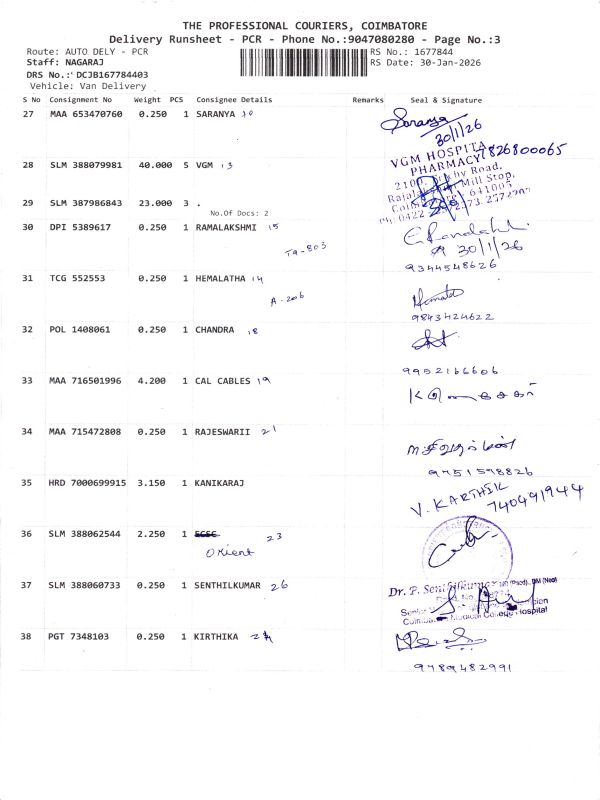 THE PROFESSIONAL COURIERS, COIMBATORE
Delivery Runsheet - PCR - Phone No.:9047080280 - Page No.:3
Route: AUTO DELY - PCR
RS No.: 1677844
Staff: NAGARAJ
RS Date: 30-Jan-2026
DRS No.: DCJB167784403
Vehicle: Van Delivery
S No Consignment No Weight PCS Consignee Details Remarks Seal & Signature
27 MAA 653470760 0.250 1 SARANYA 10 Saranya
30/1/26
28 SLM 388079981 40.000 5 VGM 13 VGM HOSPITAL
PHARMACY
Mill Stop,
29 SLM 387986843 23.000 3 .
No.Of Docs: 2
30 DPI 5389617 0.250 1 RAMALAKSHMI 15
TA-803 30/1/26
9344548626
31 TCG 552553 0.250 1 HEMALATHA 14
A-206
9843424622
32 POL 1408061 0.250 1 CHANDRA 18
9952166606
33 MAA 716501996 4.200 1 CAL CABLES 19
34 MAA 715472808 0.250 1 RAJESWARII 21
9751578826
35 HRD 7000699915 3.150 1 KANIKARAJ V. KARTHIK
740491944
36 SLM 388062544 2.250 1 23
Orient
37 SLM 388060733 0.250 1 SENTHILKUMAR 26 Dr. P. Senthilkumar
Medical College Hospital
38 PGT 7348103 0.250 1 KIRTHIKA
9789482991